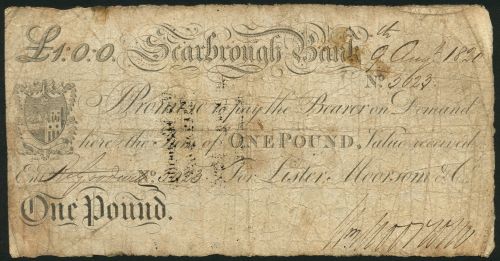 £1:0:0. Scarbrough Bank
9th Augt. 1821
No. 3623
I Promise to pay the Bearer on Demand
here the Sum of ONE POUND, Value received
Entd. No. 3623 For Lister, Moorsom & Co.
One Pound.